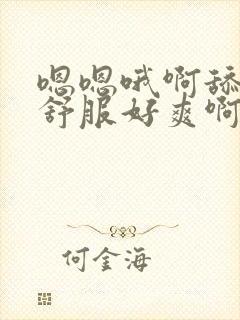 嗯嗯哦啊舔
舒服好爽啊
何金海